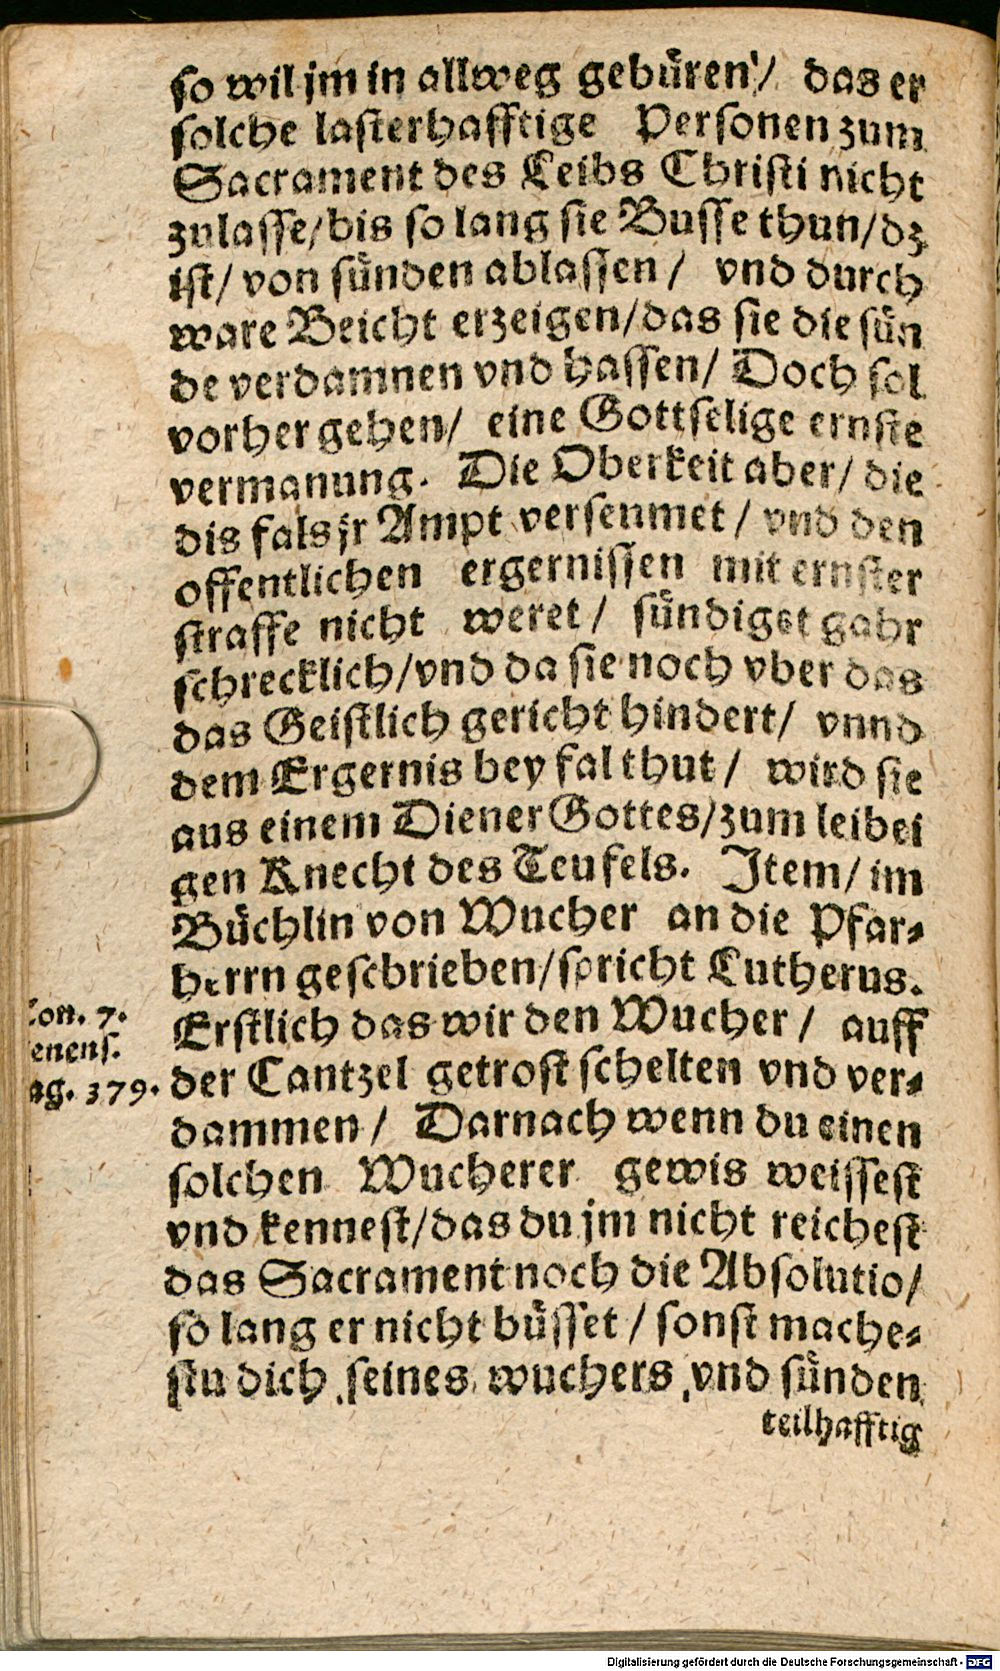 so wil jm in allweg gebüren / das er
solche lasterhafftige Personen zum
Sacrament des Leibs Christi nicht
zulasse/bis so lang sie Busse thun/dz
ist/ von sünden ablassen / vnd durch
ware Beicht erzeigen/das sie die sün
de verdamnen vnd hassen/ Doch sol
vorher gehen/ eine Gottselige ernste
vermanung. Die Oberkeit aber/ die
dis fals jr Ampt verseumet / vnd den
offentlichen ergernissen mit ernster
straffe nicht weret / sündiget gahr
schrecklich/vnd da sie noch vber das
das Geistlich gericht hindert/ vnnd
dem Ergernis bey fal thut / wird sie
aus einem Diener Gottes/zum leibei
gen Knecht des Teufels. Item/ im
Büchlin von Wucher an die Pfar-
herrn geschrieben/spricht Lutherus.
Erstlich das wir den Wucher / auff
der Cantzel getrost schelten vnd ver-
dammen / Darnach wenn du einen
solchen Wucherer gewis weissest
vnd kennest/das du jm nicht reichest
das Sacrament noch die Absolutio/
so lang er nicht büsset / sonst mache-
stu dich seines wuchers vnd sünden
teilhafftig
Ton. 7.
enens.
ag. 379.
Digitalisierung gefördert durch die Deutsche Forschungsgemeinschaft - DFG